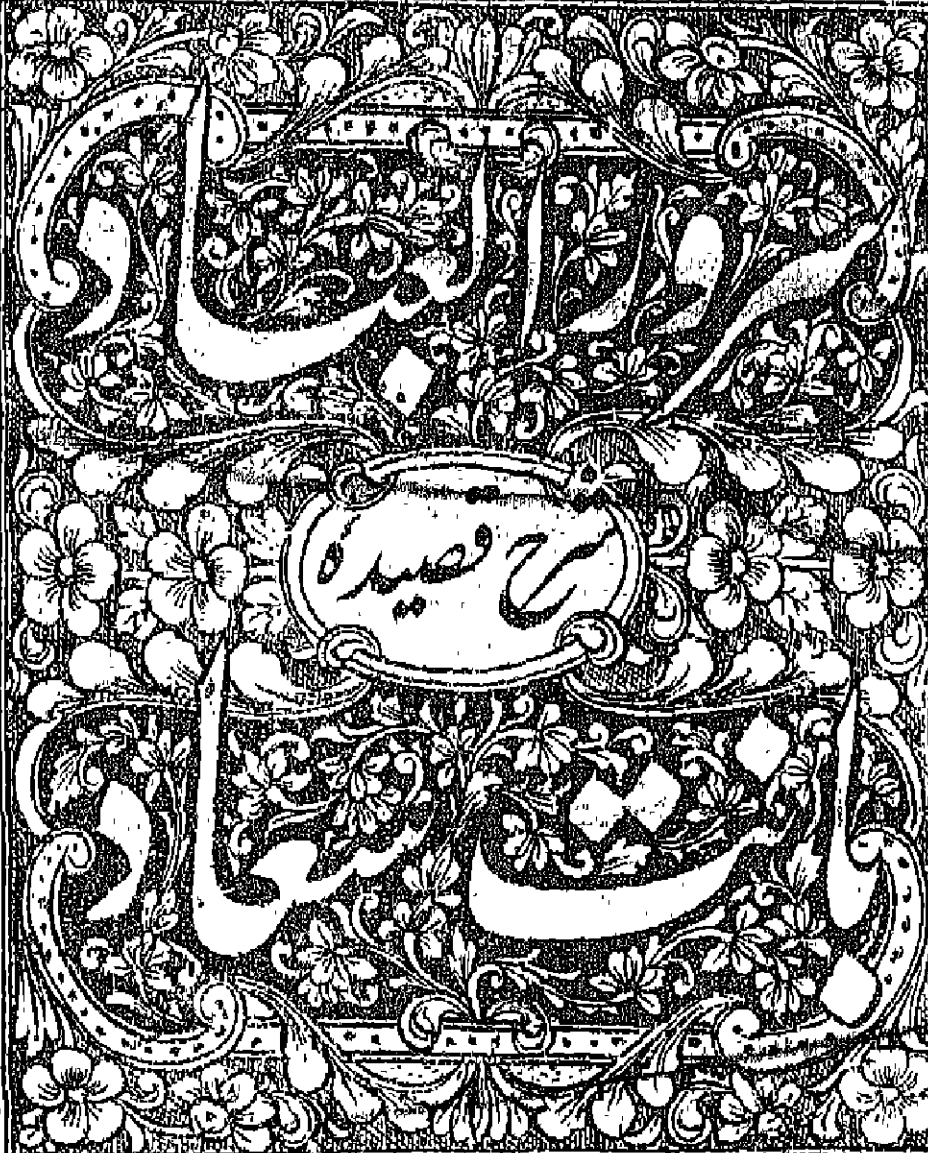 سرور العباد
شرح قصيدة
بانت سعاد